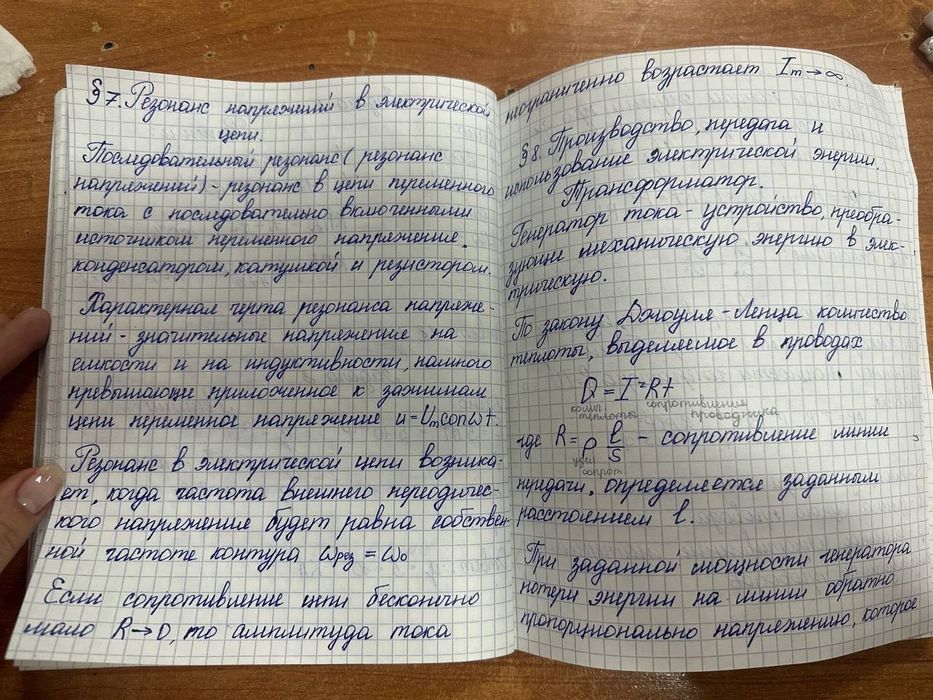 §7. Резонанс напряжений в электрической
цепи.
Последовательный резонанс (резонанс
напряжений) - резонанс в цепи переменного
тока с последовательно включенными
источником переменного напряжение,
конденсатором, катушкой и резистором.
Характерная черта резонанса напряже-
ний - значительное напряжение на
емкости и на индуктивности, намного
превышающие приложенное к зажимам
цепи переменное напряжение u = Uₘ cos ωt.
Резонанс в электрической цепи возника-
ет, когда частота внешнего переодичес-
кого напряжение будет равна собствен-
ной частоте контура ωрез = ω₀
Если сопротивление цепи бесконечно
мало R→0, то амплитуда тока
неограниченно возрастает Iₘ→∞.
§8. Производство, передача и
использование электрической энергии.
Трансформатор.
Генератор тока - устройство, преобра-
зующие механическую энергию в элек-
трическую.
По закону Джоуля-Ленца количество
теплоты, выделяемое в проводах
Q = I²Rt
колич. теплоты сопротивление проводника
где R = ρ l/S - сопротивление линии
удел. сопрот.
передачи, определяется заданным
расстоянием l.
При заданной мощности генератора
потери энергии на линии обратно
пропорционально напряжению, которое